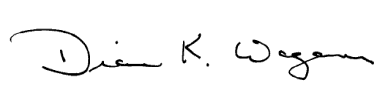 Diane K. Wagener